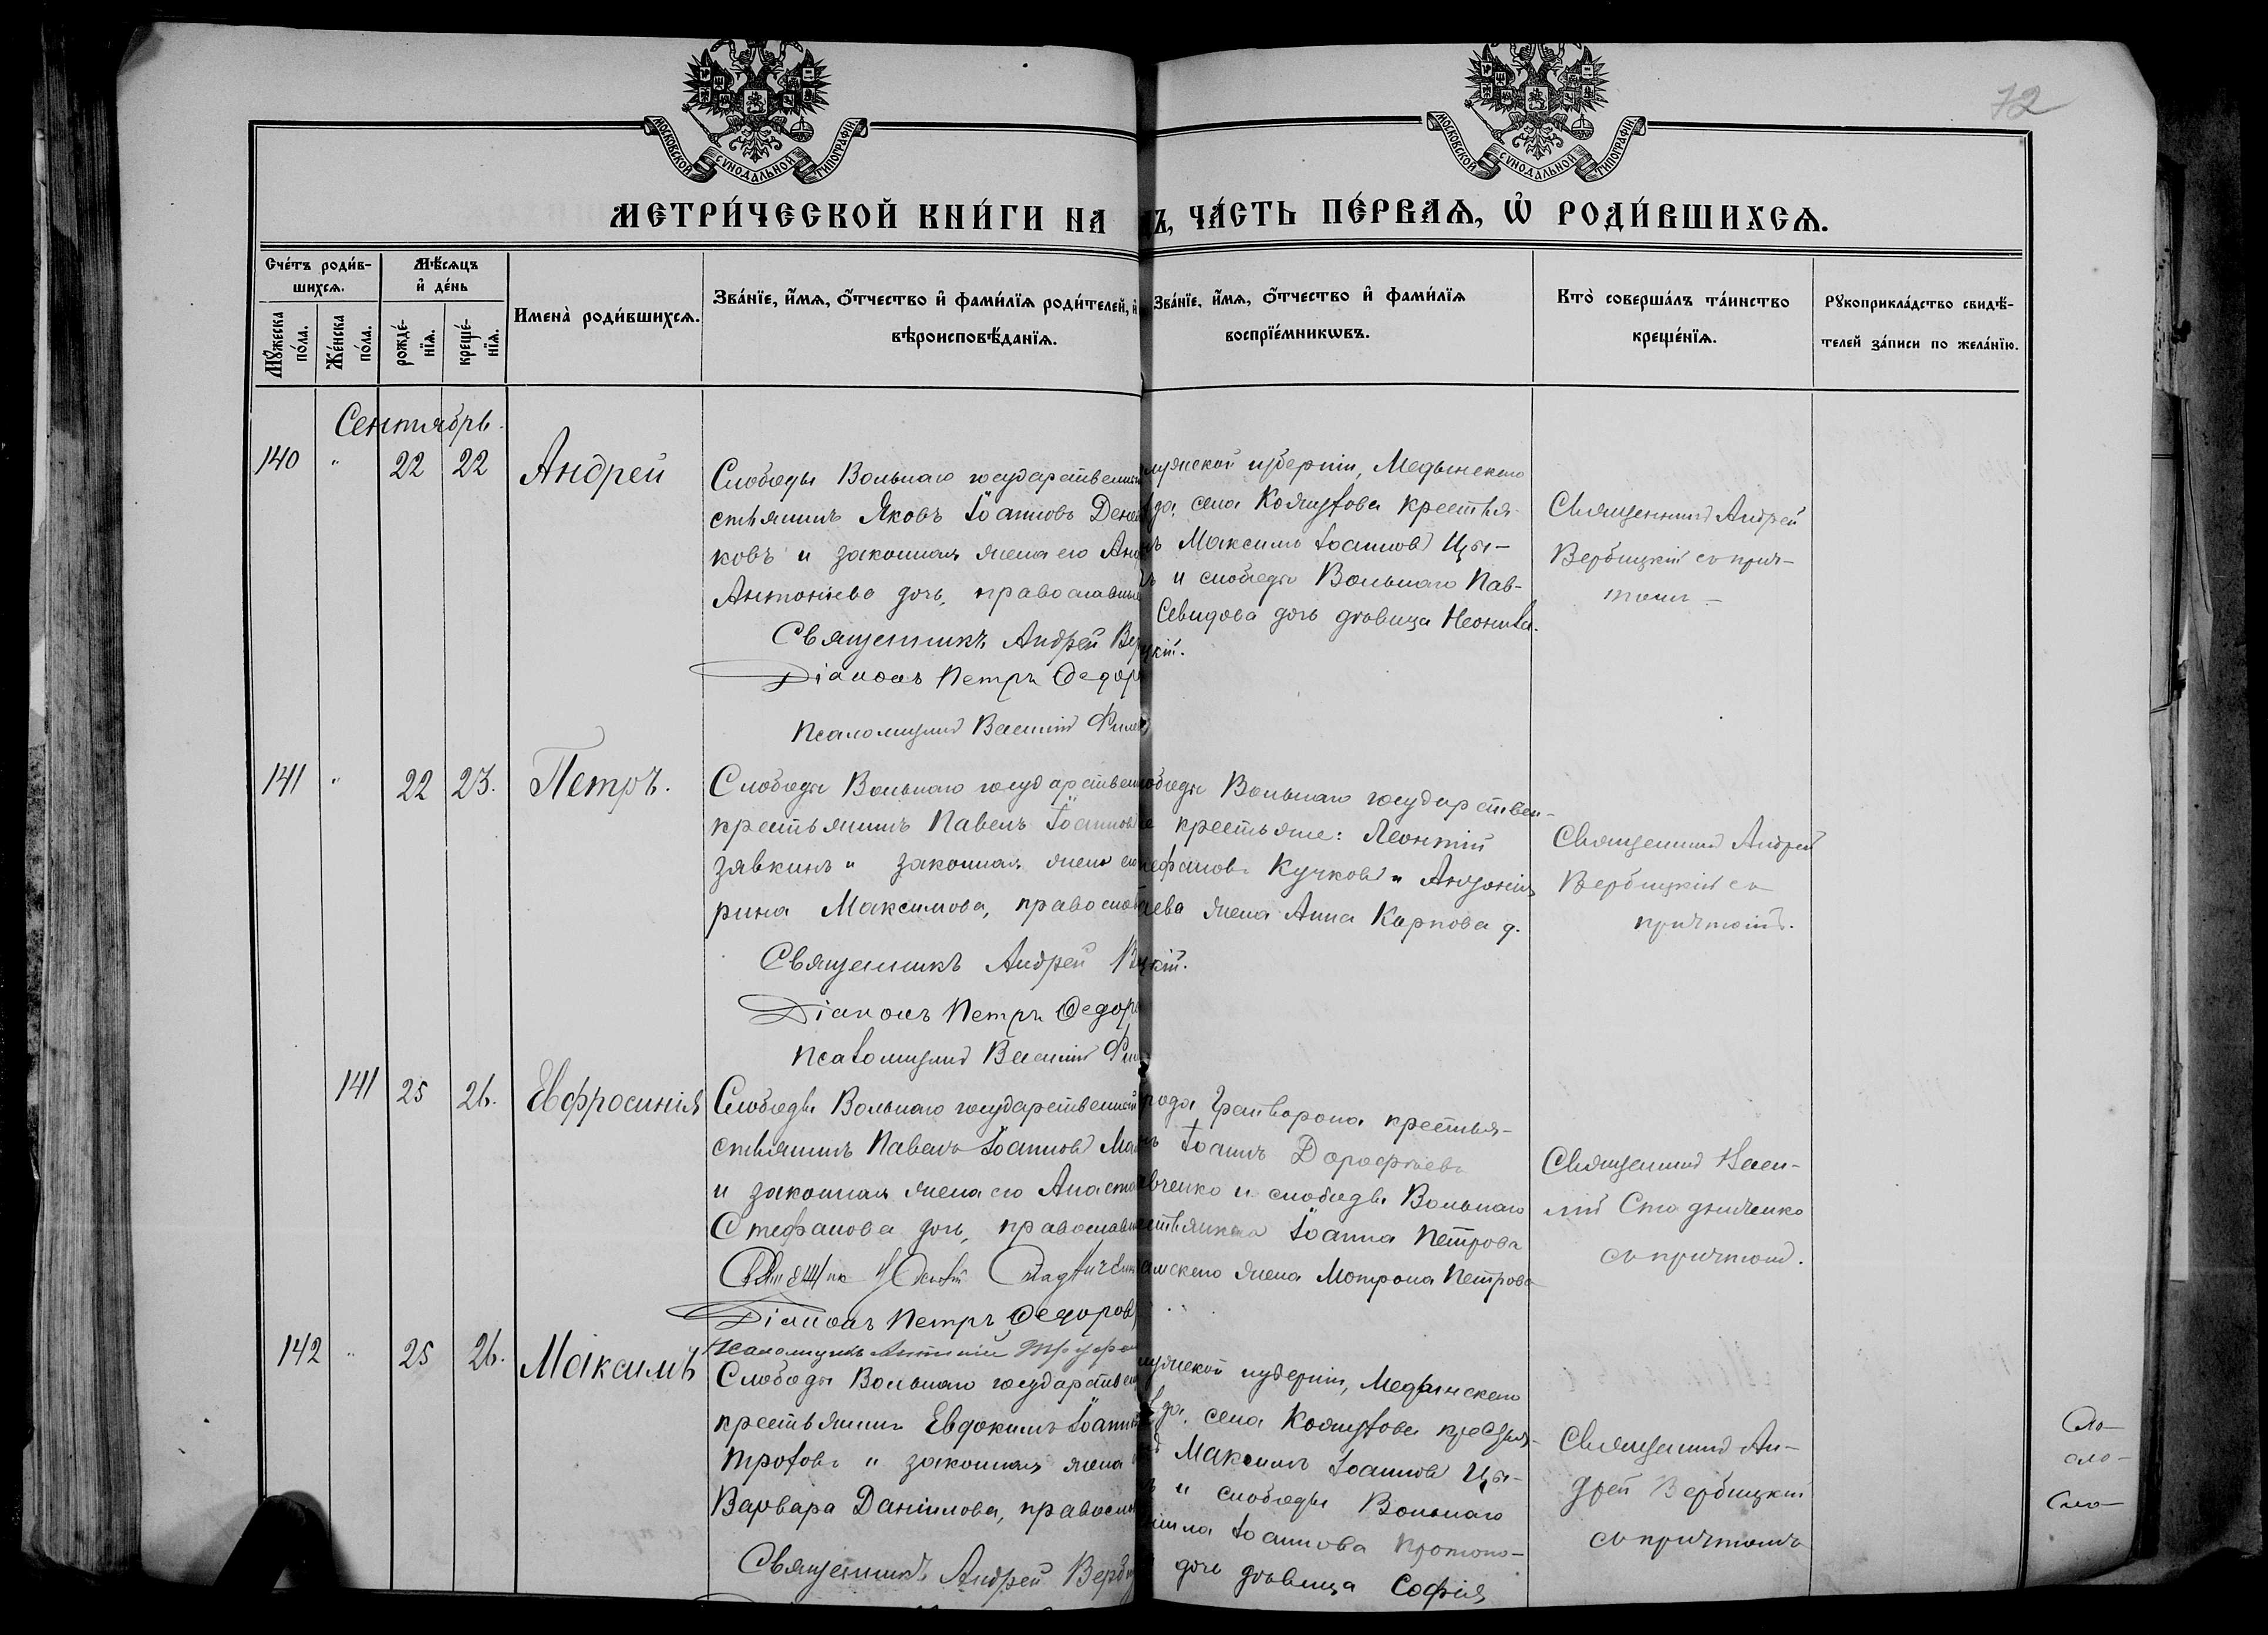 72
МОСКОВСКОЙ СѴНОДАЛЬНОЙ ТИПОГРАФІИ.
МОСКОВСКОЙ СѴНОДАЛЬНОЙ ТИПОГРАФІИ.
МЕТРИ́ЧЕСКОЙ КНИ́ГИ НА
Ъ, ЧА́СТЬ ПЕ́РВАѦ, Ѡ҆ РОДИ́ВШИХСѦ.
Сче́тъ роди́в-
шихсѧ.
Мѣ́сѧцъ
и҆ де́нь
Мꙋ́жеска
по́ла.
Же́нска
по́ла.
рожде́-
нїѧ.
креще́-
нїѧ.
Имена̀ роди́вшихсѧ.
Зва́нїе, и҆́мѧ, ѻ҆́тчество и҆ фами́лїѧ роди́телей, и҆
вѣроисповѣ́данїѧ.
Зва́нїе, и҆́мѧ, ѻ҆́тчество и҆ фами́лїѧ
воспрїе́мникѡвъ.
Кто̀ соверша́лъ та́инство
креще́нїѧ.
Рꙋкоприкла́дство свидѣ́-
телей за́писи по жела́нїю.
Сентябрь.
140 " 22 22 Андрей
Слободы Вольнаго государственный
стьянинъ Яковъ Іоанновъ
ковъ и законная жена его
Антоніева дочь, православные
Священникъ Андрей
Діаконъ Петръ Федоров
Псаломщикъ Василій
лужской губерніи, Медынскаго
да, села крестья-
ъ Максимъ Іоанновъ Цы-
ъ и слободы Вольнаго Пав-
дочь дѣвица
цкій.
Священникъ Андрей
Вербицкій съ прич-
томъ
141 " 22 23. Петръ.
Слободы Вольнаго государствен
крестьянинъ Павелъ Іоанновъ
зявкинъ и законная жена его
рина Максимова, православ
Священникъ Андрей
Діаконъ Петръ Федоров
Псаломщикъ Василій
ободы Вольнаго государствен-
е крестьяне: Леонтій
тефановъ Кучковъ и
аева жена Анна Карпова д.
цкій.
Священникъ Андрей
Вербицкій съ
причтомъ.
141 25 26. Евфросинія
Слободы Вольнаго государственный
стьянинъ Павелъ Іоанновъ
и законная жена его Анаста
Стефанова дочь, православные
Діаконъ Петръ Федоровъ
Псаломщикъ
рода Грайворона крестья-
ъ Іоаннъ Дорофѣевъ
вченко и слободы Вольнаго
естьянина Іоанна Петрова
жена Мотрона Петрова
Священникъ
съ причтомъ.
142 " 25 26. Максимъ
Слободы Вольнаго государствен
крестьянинъ Евдокимъ Іоанн
и законная жена
Варвара Даніилова, православ
Священникъ Андрей Верби
лужской губерніи, Медынскаго
да, села крестья-
Максимъ Іоанновъ Цы-
ъ и слободы Вольнаго
іила Іоаннова
дочь дѣвица Софія
Священникъ Ан-
дрей Вербицкій
съ причтомъ